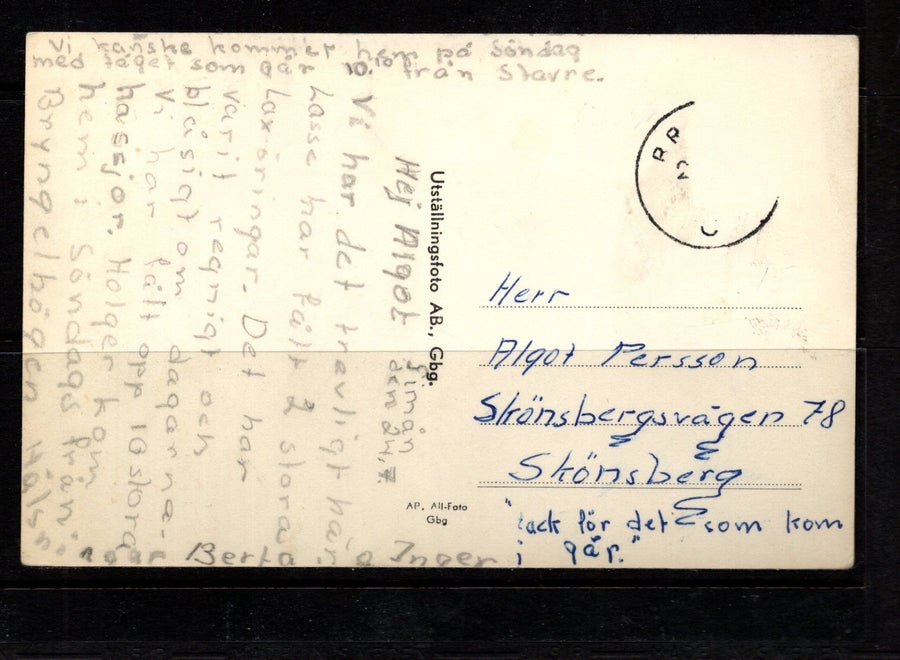 Vi kanske kommer hem på Söndag
med tåget som går 10.10 från Stavre.
Gimån
den 24.7.
Hej Algot
Vi har det trevligt här
Lasse har fått 2 stora
Laxöringar. Det har
varit regnigt och
blåsigt om dagarna-
Vi har fått opp 10 stora
hässjor. Holger kom
hem i Söndags från
Bryngelhögen
Berta Inger
Utställningsfoto AB., Gbg.
AP. All-Foto
Gbg
Herr
Algot Persson
Skönsbergsvägen 78
Skönsberg
"Tack för det som kom
i går."